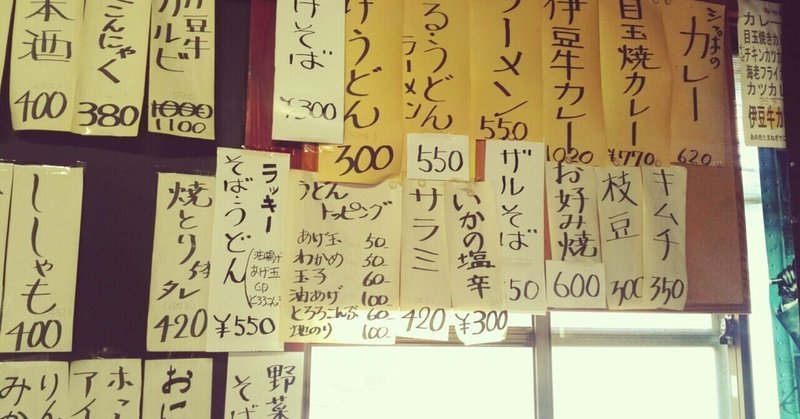 本酒
400
こんにゃく
380
伊豆牛
カルビ
1000
1100
けそば
¥300
けうどん
300
る・うどん
ラーメン
550
ラーメン
550
伊豆牛カレー
1020
目玉焼カレー
¥770
カレー
620
カレー
目玉焼きカ
チキンカツカ
海老フライ
カツカレ
伊豆牛カ
ししゃも
400
焼とり
タレ
420
ラッキー
そば・うどん
¥550
うどん
トッピング
あげ玉 50
わかめ 50
玉子 60
油あげ 100
とろろこんぶ 60
地のり 100
サラミ
420
いかの塩辛
¥300
ザルそば
50
お好み焼
600
枝豆
300
キムチ
350
りん
みか
ホッ
アイ
おに
そば
野菜